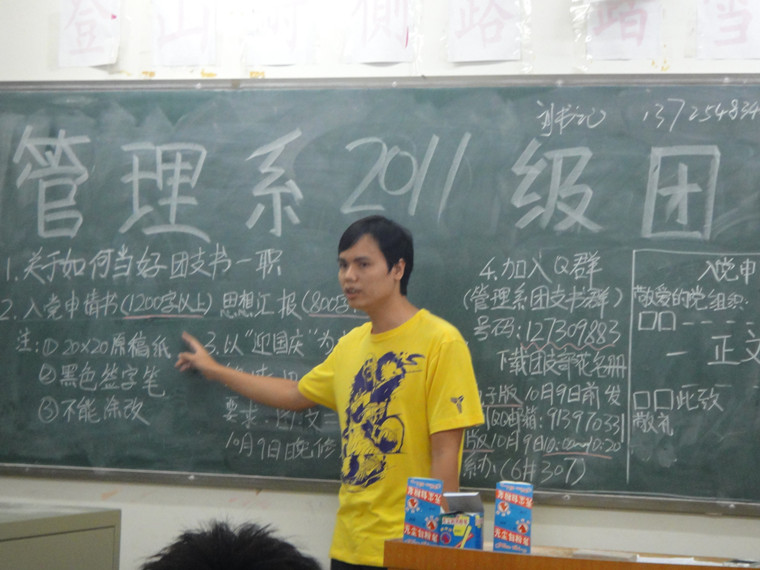 登山 侧路 踏当
刘书记 137254834
管理系2011级团
1.关于如何当好团支书一职
2.入党申请书(1200字以上) 思想汇报(800字
注:①20×20原稿纸
②黑色签字笔
③不能涂改
3.以“迎国庆”为
要求:图文
10月9日晚修
4.加入Q群
(管理系团支书群)
号码:127309883
下载团支部花名册
子版10月9日前发
QQ邮箱:91397033
版10月9日10:00~10:20
系办(6#307)
入党申
敬爱的党组织:
一 正文
此致
敬礼